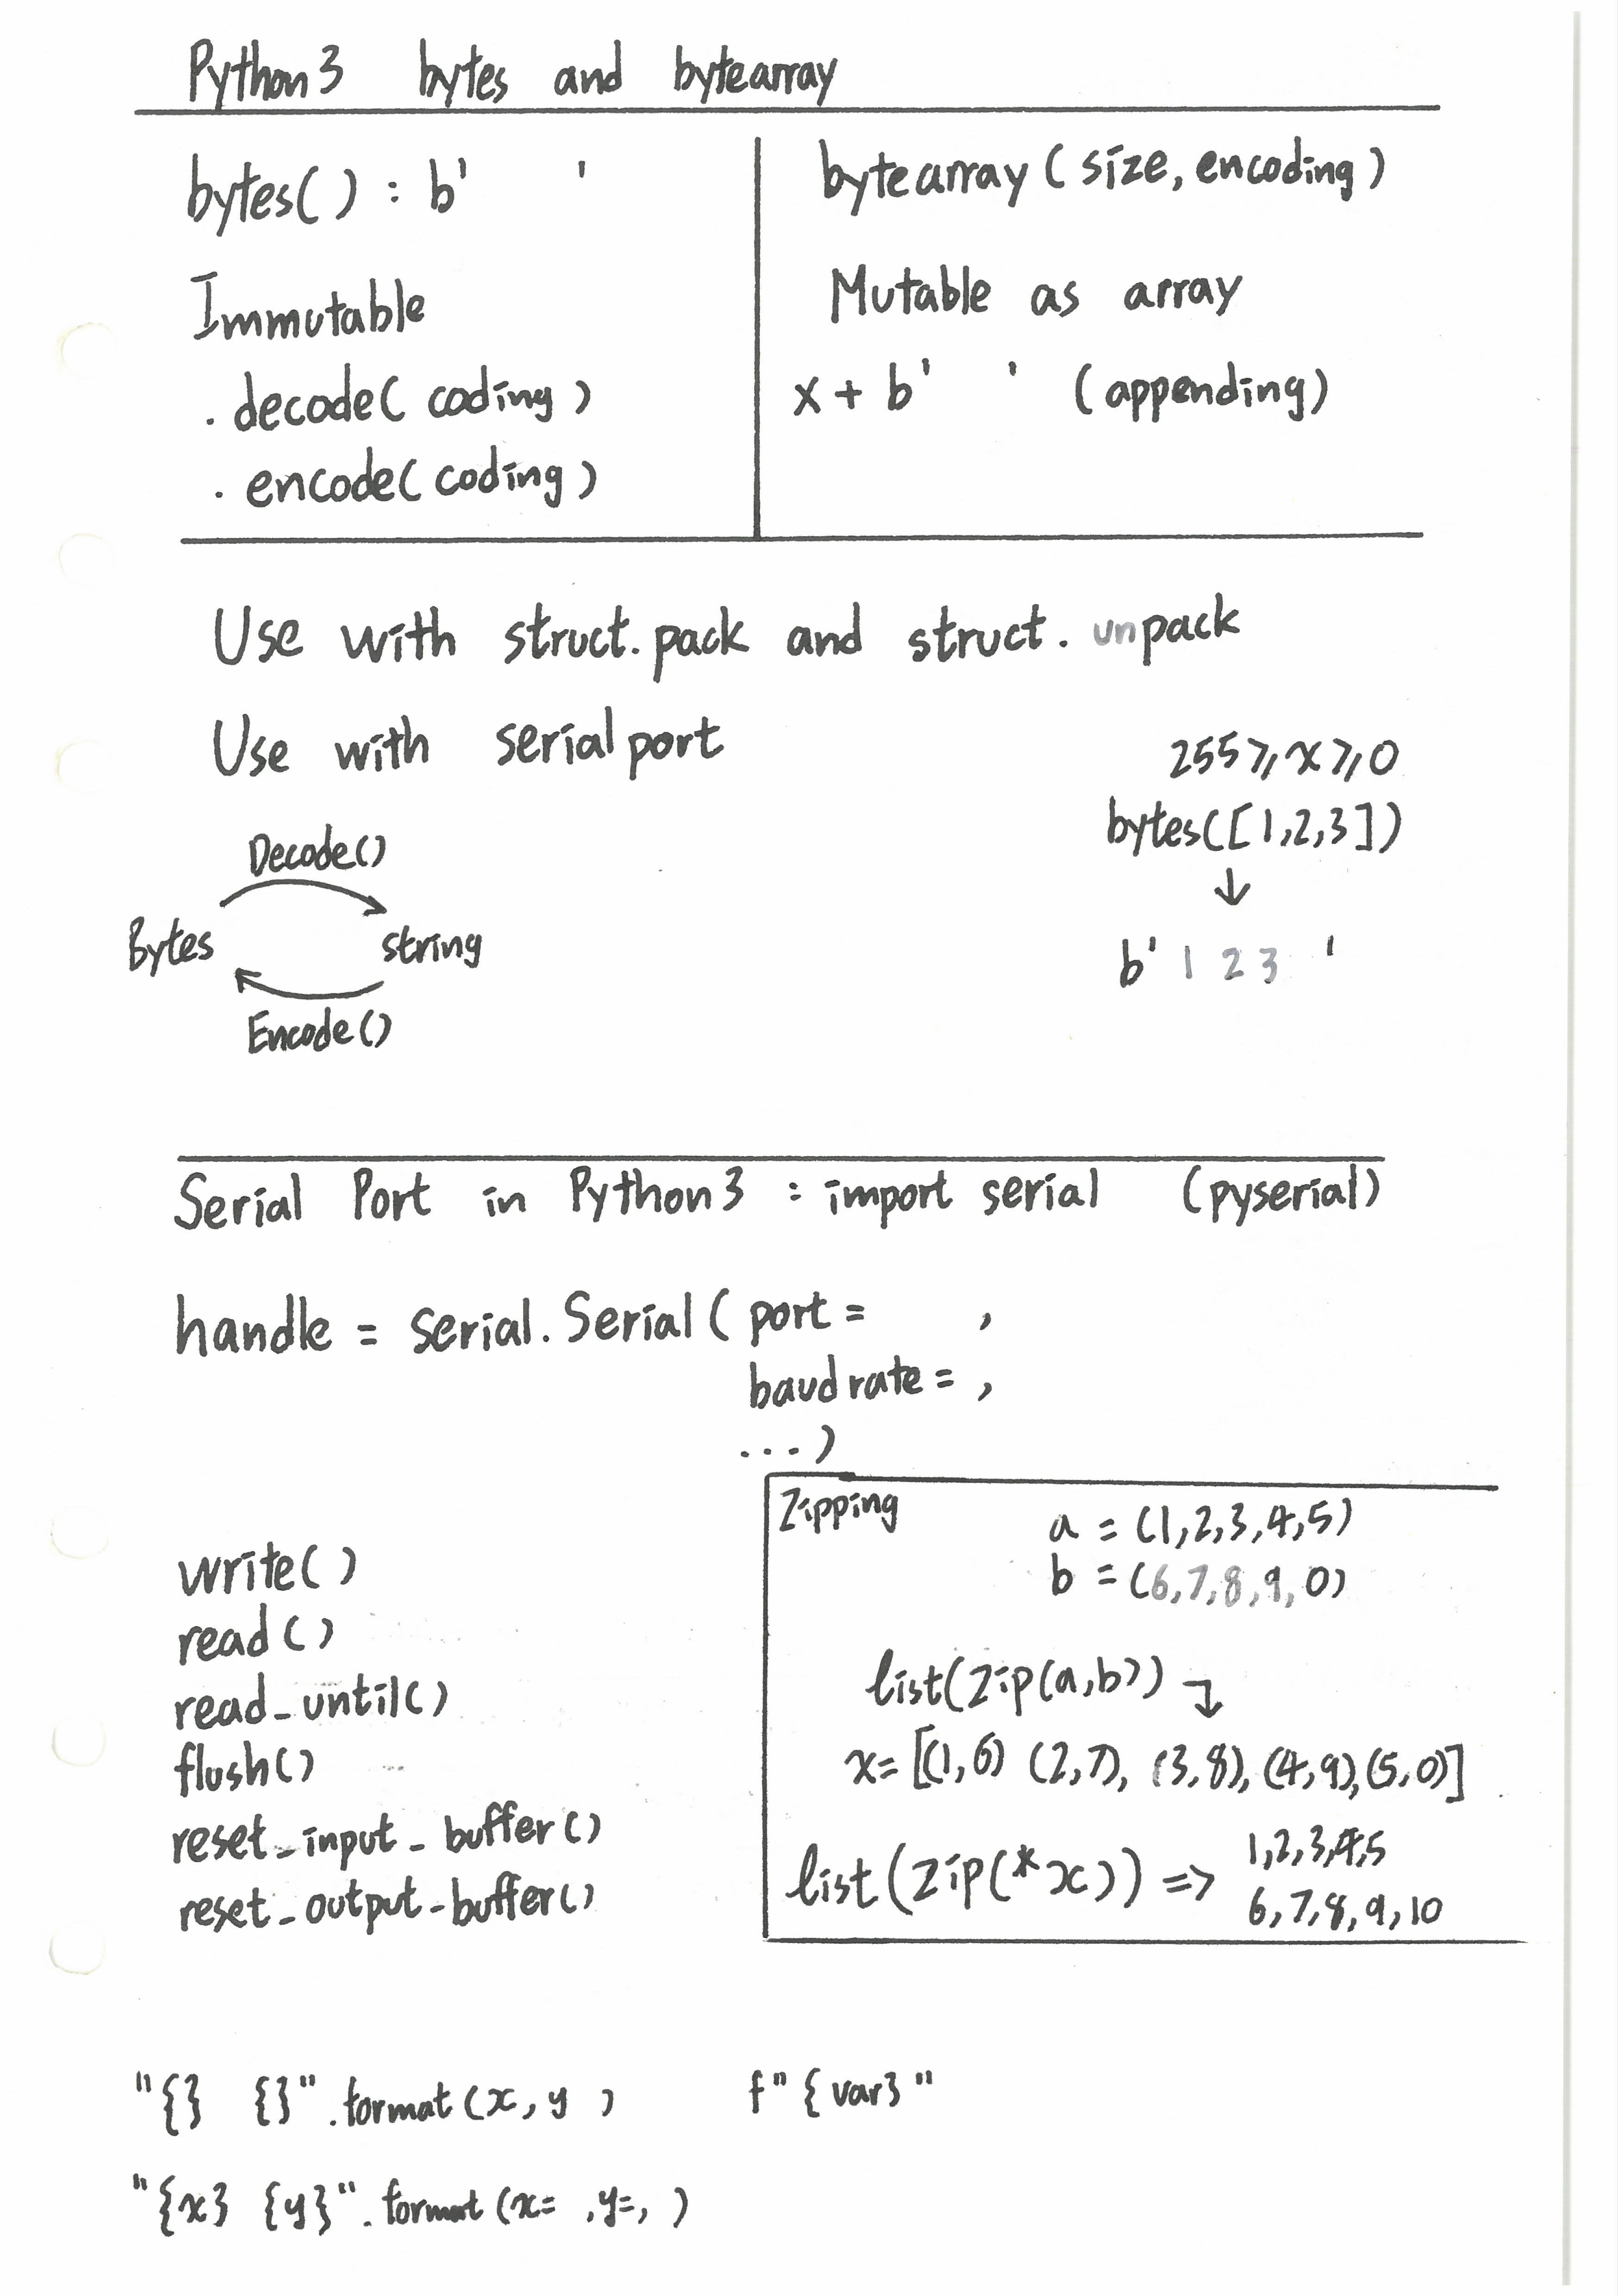 Python3 bytes and bytearray
bytes() : b' '
Immutable
.decode( coding )
.encode( coding )
bytearray ( size, encoding )
Mutable as array
x + b' ' ( appending)
Use with struct.pack and struct.unpack
Use with serial port
Decode()
Bytes string
Encode()
255 ⩾ x ⩾ 0
bytes([1,2,3])
↓
b' 1 2 3 '
Serial Port in Python3 : import serial (pyserial)
handle = serial.Serial ( port = ,
baudrate = ,
...)
write()
read()
read_until()
flush()
reset_input_buffer()
reset_output_buffer()
Zipping
a = (1,2,3,4,5)
b = (6,7,8,9,0)
list(zip(a,b))
x = [(1,6) (2,7), (3,8), (4,9),(5,0)]
list(zip(*x)) => 1,2,3,4,5
6,7,8,9,10
"{} {}".format(x, y ) f"{var}"
"{x} {y}".format(x= ,y=, )